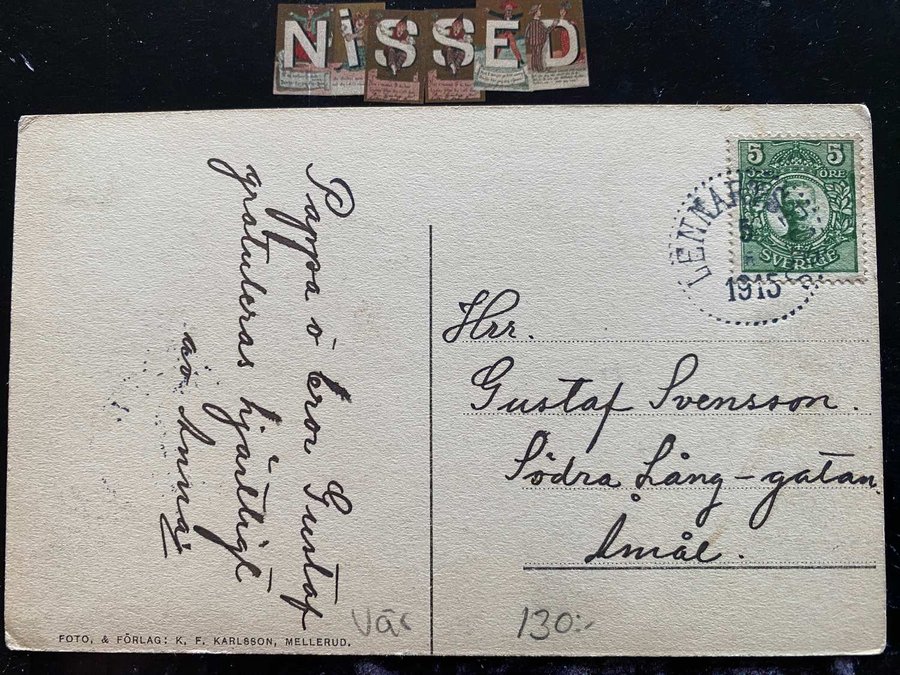 NISSED
Pappa o bror Gustaf
gratuleras hjärtligt
av Anna
5 5
ÖRE ÖRE
SVERIGE
LENNAR
1915
Hrr.
Gustaf Svensson.
Södra Lång-gatan.
Åmål.
Vär
130:-
FOTO. & FÖRLAG: K. F. KARLSSON, MELLERUD.